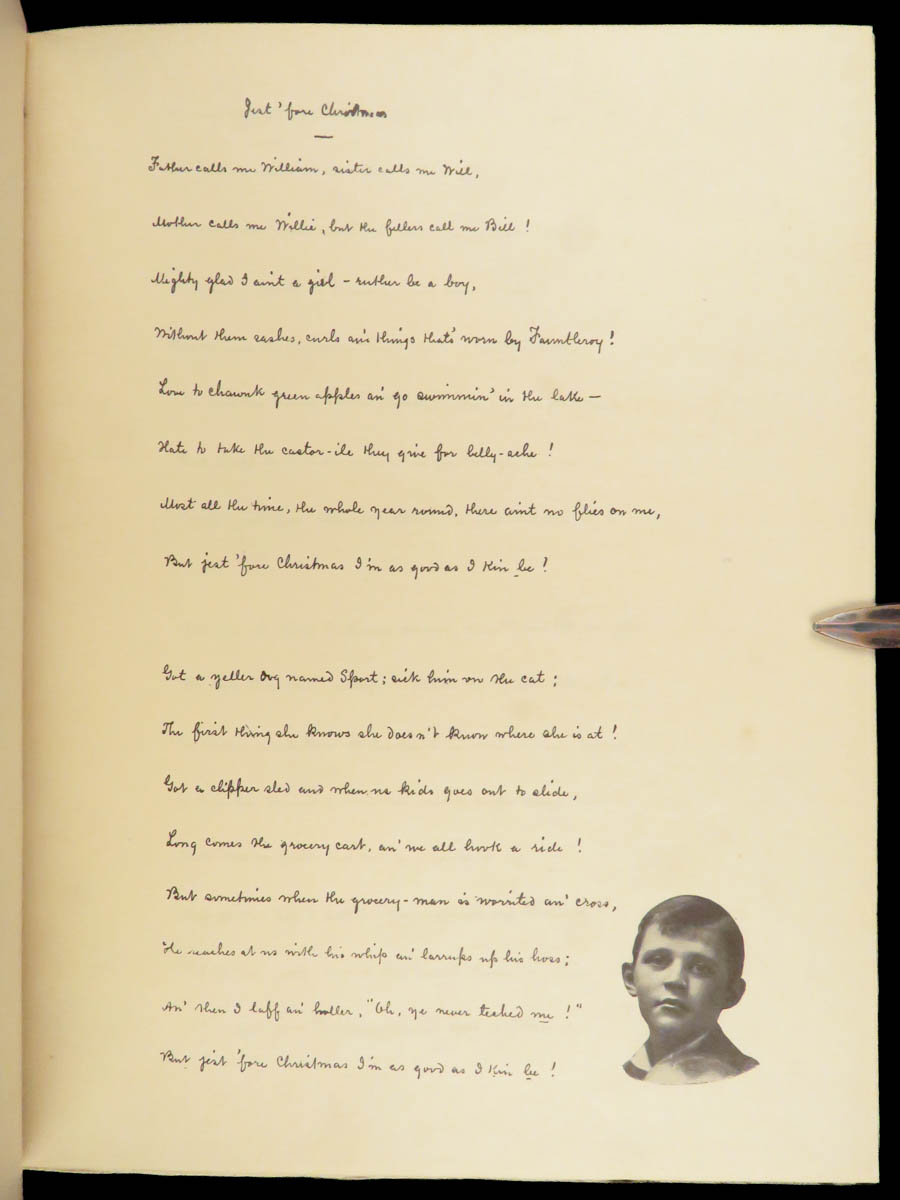 Jest 'fore Christmas
Father calls me William, sister calls me Will,
Mother calls me Willie, but the fellers call me Bill!
Mighty glad I aint a girl - ruther be a boy,
Without them sashes, curls an' things that's worn by Fauntleroy!
Love to chawnk green apples an' go swimmin' in the lake —
Hate to take the castor-ile they give for belly-ache!
Most all the time, the whole year round, there aint no flies on me,
But jest 'fore Christmas I'm as good as I kin be!
Got a yeller dog named Sport; sick him on the cat;
The first thing she knows she doesn't know where she is at!
Got a clipper sled and when us kids goes out to slide,
Long comes the grocery cart, an' we all hook a ride!
But sometimes when the grocery-man is worrited an' cross,
He reaches at us with his whip an' larrups up his hoss;
An' then I laff an' holler, "Oh, ye never teched me!"
But jest 'fore Christmas I'm as good as I kin be!